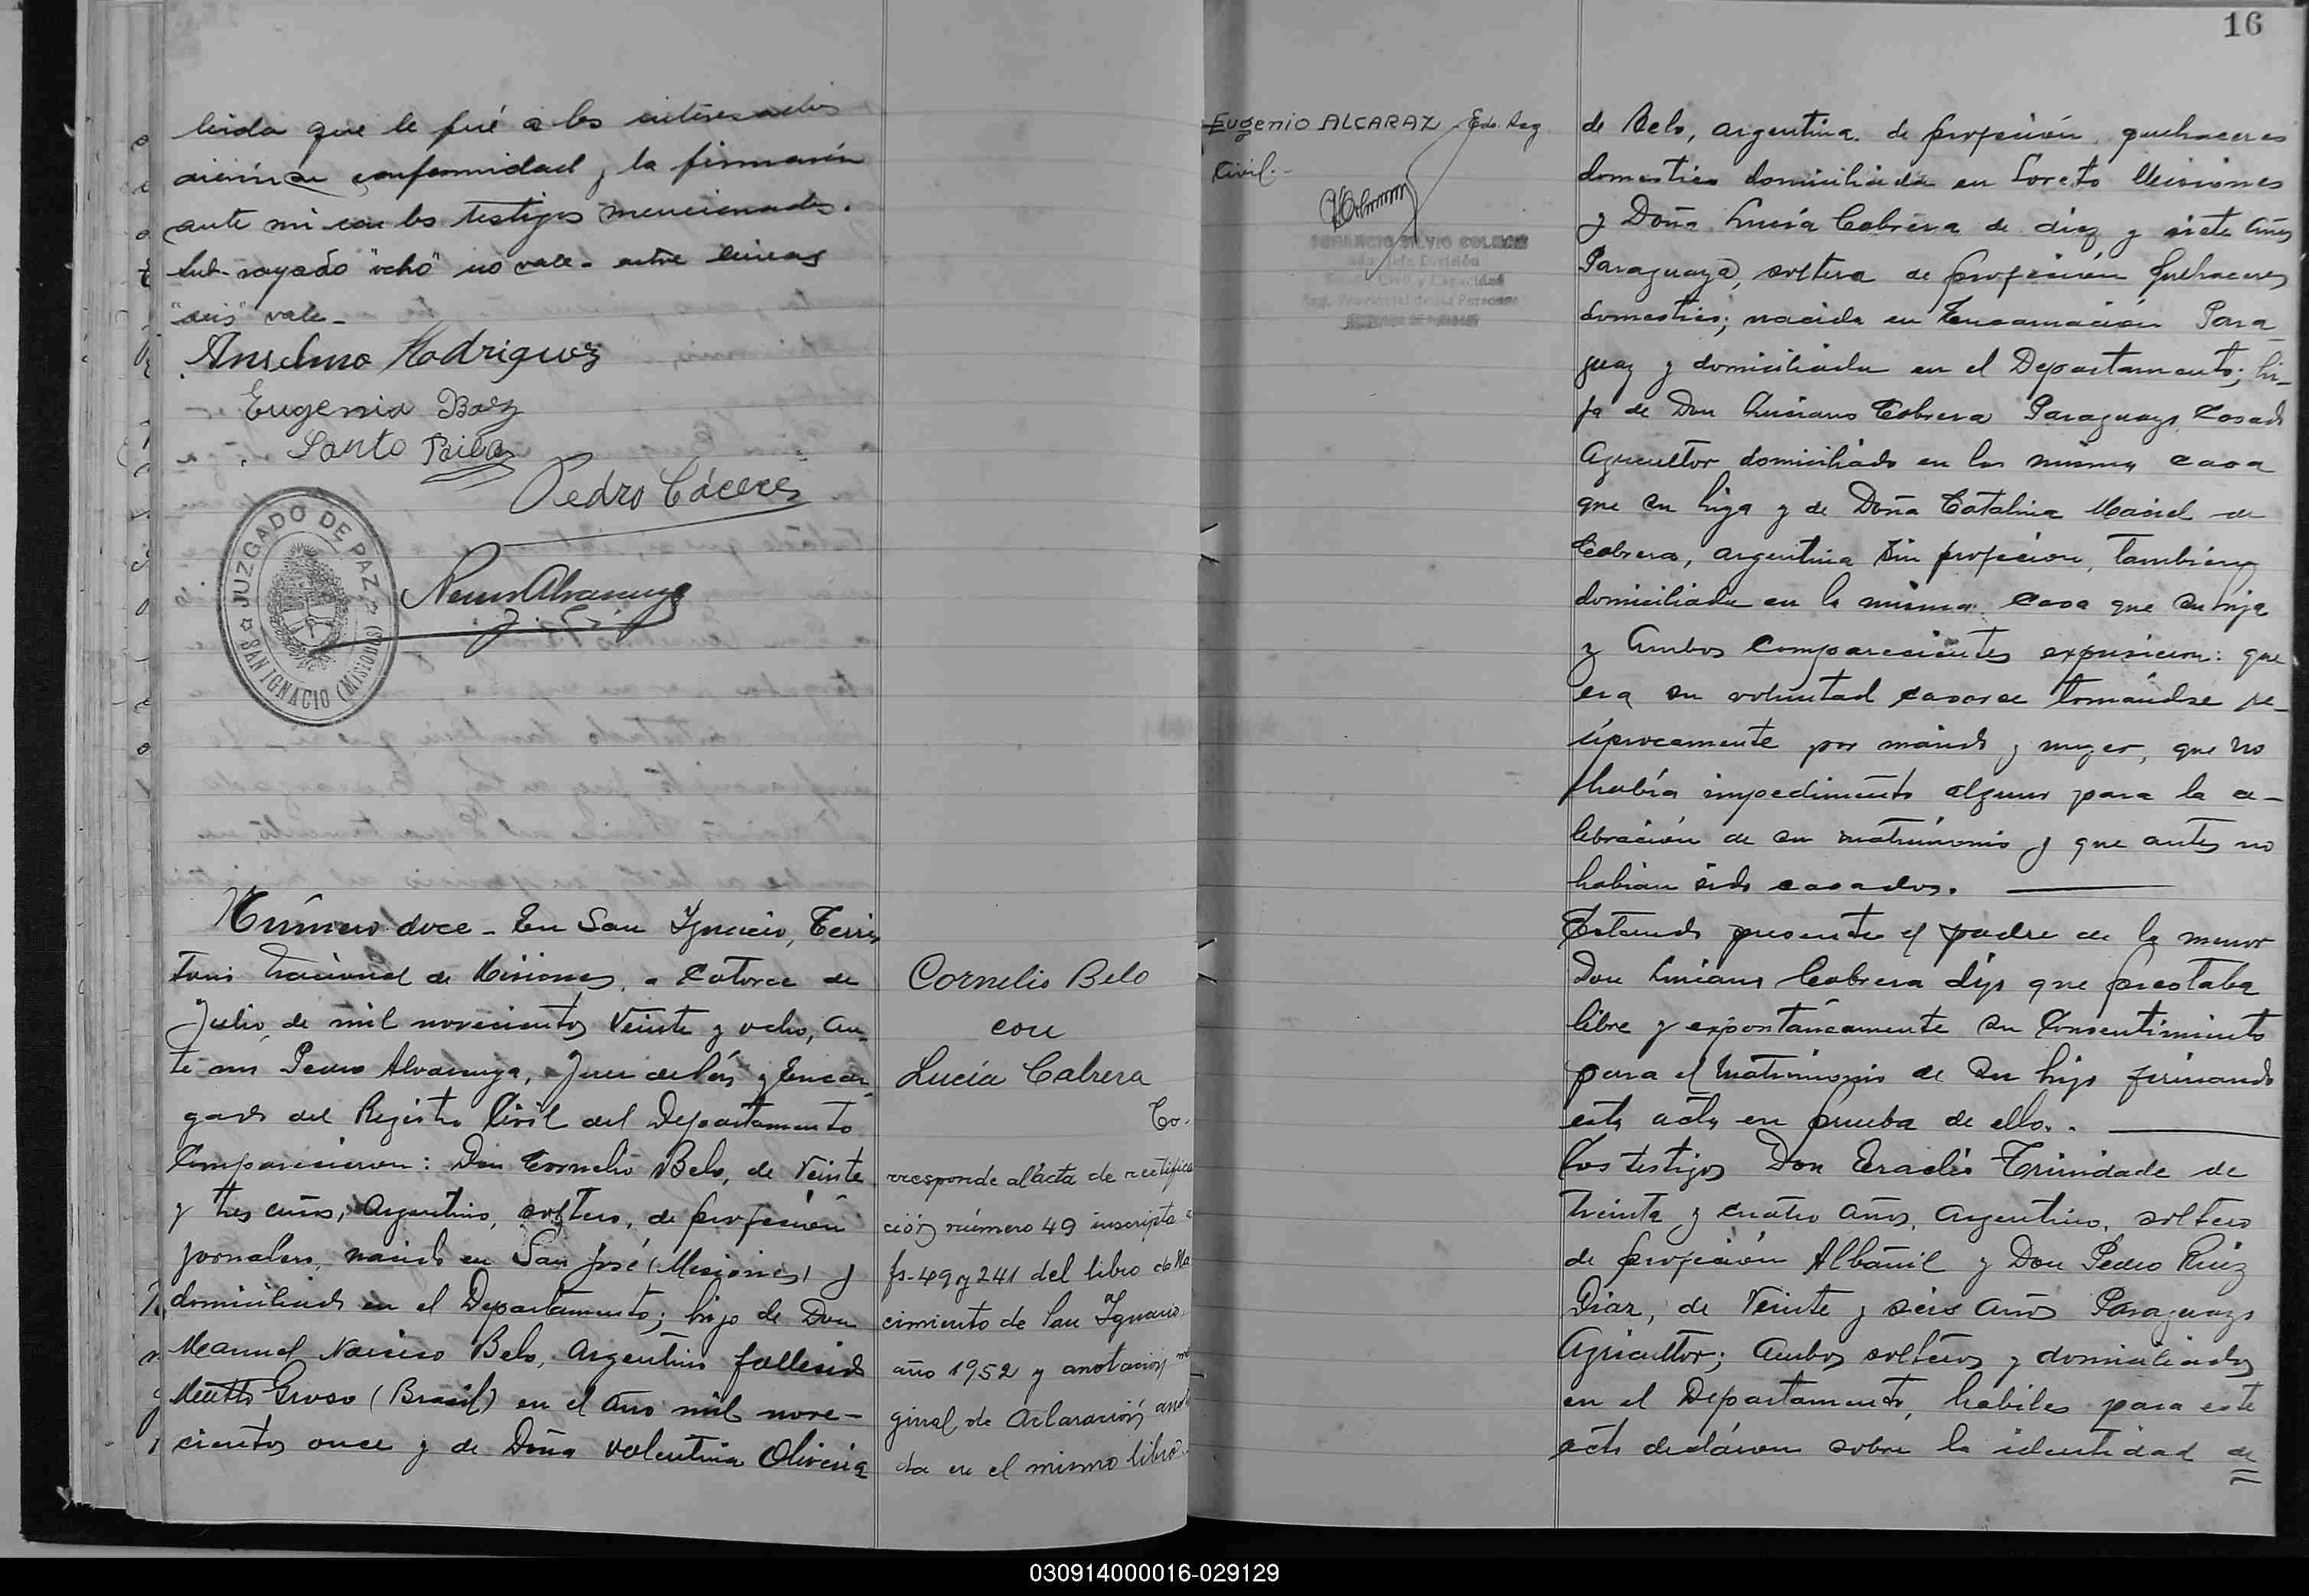 leida que le fué a los interesados
dieron su conformidad y la firmaron
ante mi con los testigos mencionados.
Sub-rayado "ocho" no vale - entre lineas
"seis" vale -
Anselmo Rodriguez
Eugenia Baez
Santo
Pedro Cáceres
JUZGADO DE PAZ
SAN IGNACIO (Misiones)
Número doce - En San Ygnacio, Terri
torio Nacional de Misiones, a Catorce de
Julio de mil novecientos Veinte y ocho, an-
te mi Pedro Alvarenga, Juez de Páz y Encar-
gado del Registro Civil del Departamento
Comparecieron: Don Cornelio Belo, de Veinte
y tres años, Argentino, soltero, de profeción
jornalero, nacido en San José (Misiones) y
domiciliado en el Departamento; hijo de Don
Manuel Narciso Belo, Argentino fallecido
Matto Groso (Brasil) en el año mil nove-
cientos once y de Doña Valentina Oliveira
Cornelio Belo
con
Lucía Cabrera
Co-
rresponde al acta de rectifica
ción número 49 inscripta a
fs-49 y 241 del libro de Na
cimiento de San Ygnacio
año 1952 y anotación mar
ginal de Aclaración anota
da en el mismo libro.-
16
Eugenio ALCARAZ - Edo. Reg
Civil.-
VENANCIO SILVIO
Jefe División
Estado Civil y Capacidad
Reg. Provincial de las Personas
de Belo, argentina de profeción quehaceres
domestico domiciliada en Loreto Misiones
y Doña Lucía Cabrera de diez y siete años
Paraguaya, soltera de profeción Quehaceres
domestico; nacida en Encarnación Para-
guay y domiciliada en el Departamento; hi-
ja de Don Luciano Cabrera Paraguayo Casado
Agricultor domiciliado en la misma casa
que su hija y de Doña Catalina Maciel de
Cabrera, argentina Sin profecion, también
domiciliada en la misma casa que su hija
y Ambos Comparecientes expusieron: que
era su voluntad casarse tomándose re-
cíprocamente por marido y muger, que no
había impedimento alguno para la ce-
lebración de su matrimonio y que antes no
habian sido casados.
Estando presente el padre de la menor
Don Luciano Cabrera dijo que prestaba
libre y expontáneamente su Consentimiento
para el Matrimonio de su hija firmando
esta acta en prueba de ello.
Los testigos Don Eraclio Trinidade de
treinta y cuatro años, Argentino, soltero
de profeción Albañil y Don Pedro Ruiz
Diaz, de Veinte y seis años Paraguayo
Agricultor; Ambos solteros y domiciliados
en el Departamento, habiles para este
acto declaron sobre la identidad de
030914000016-029129